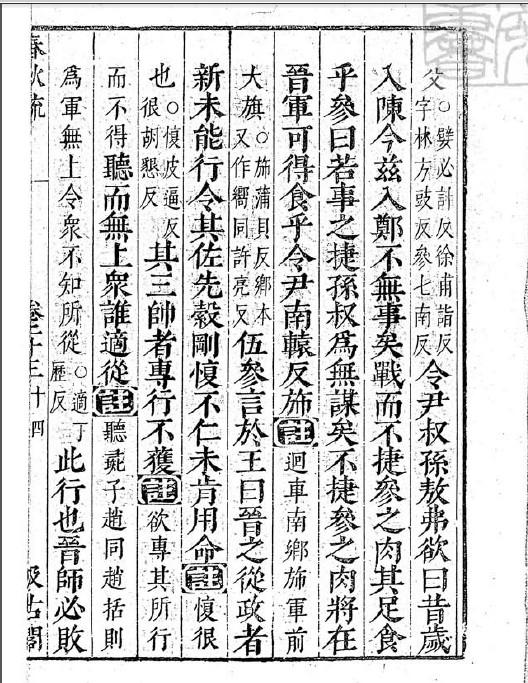 父○嬖必計反徐甫詣反字林方豉反參七南反令尹叔孫敖弗欲曰昔歲
入陳今茲入鄭不無事矣戰而不捷參之肉其足食
乎參曰若事之捷孫叔爲無謀矣不捷參之肉將在
晉軍可得食乎令尹南轅反斾註迴車南鄉斾軍前
大旗○斾蒲貝反鄉本又作嚮同許亮反伍參言於王曰晉之從政者
新未能行令其佐先縠剛愎不仁未肯用命註愎很
也○愎波逼反很胡懇反其三帥者專行不獲註欲專其所行
而不得聽而無上衆誰適從註聽彘子趙同趙括則
爲軍無上令衆不知所從○適丁歷反此行也晉師必敗
春秋疏 卷二十三 十四 汲古閣